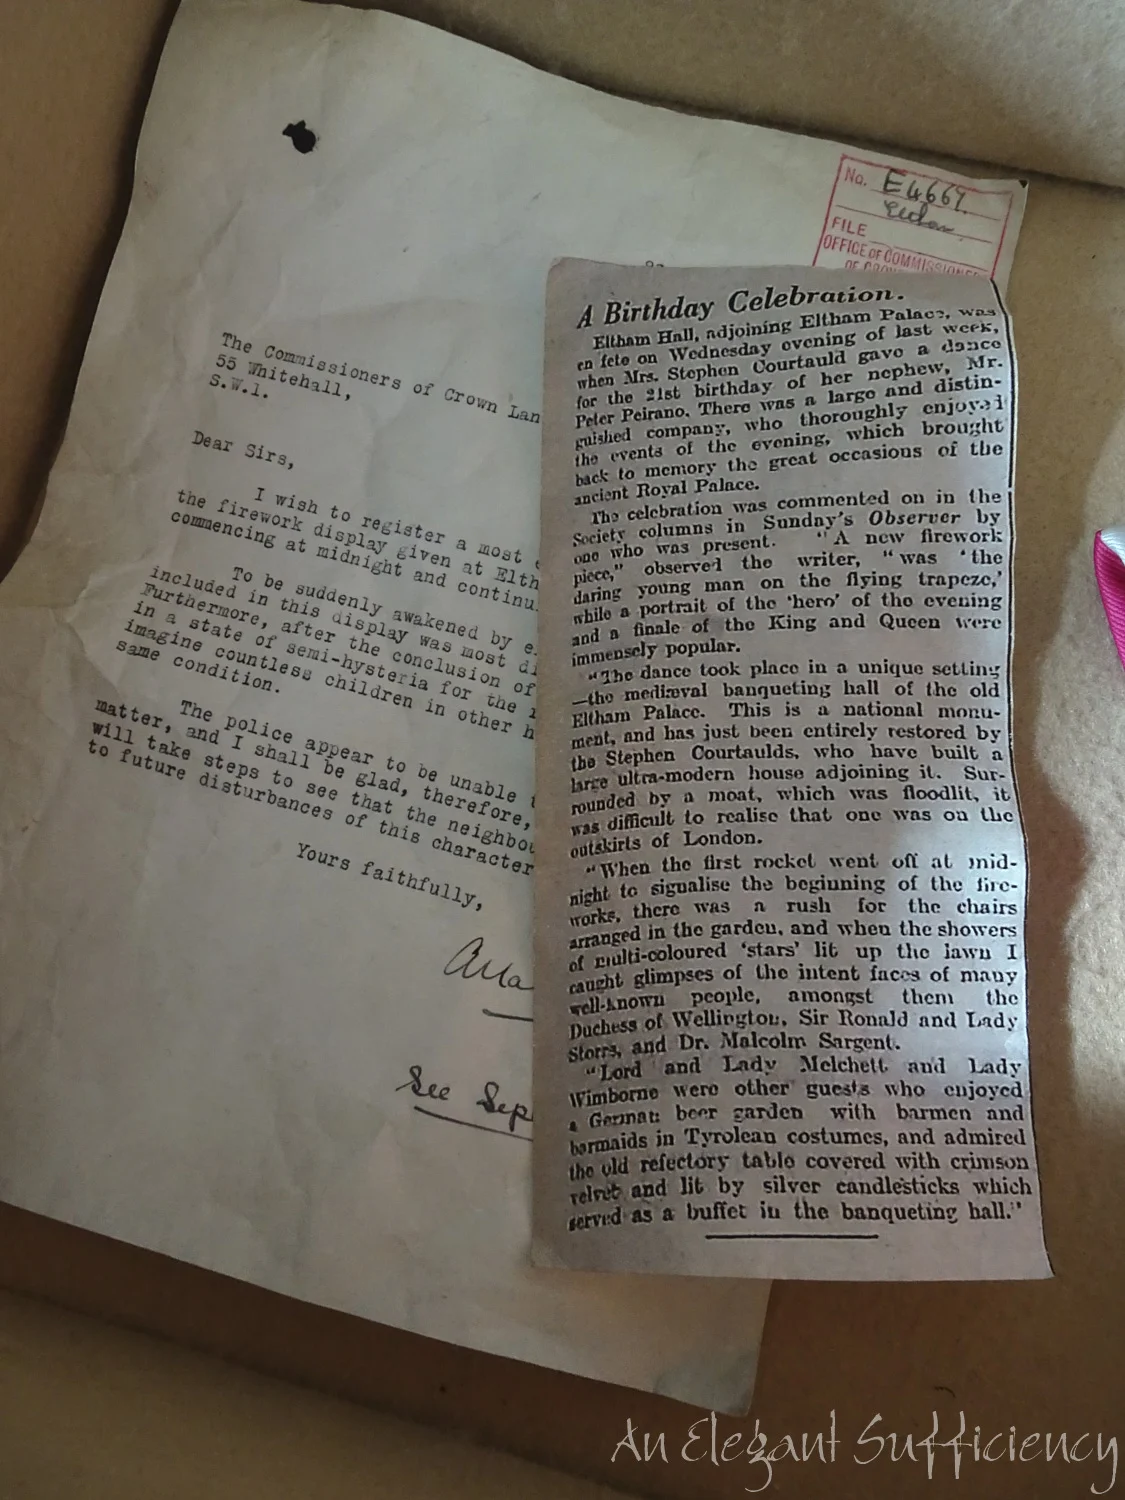 No. E4669
FILE
OFFICE OF COMMISSIONE
The Commissioners of Crown Lan
55 Whitehall,
S.W.1.
Dear Sirs,
I wish to register a most
the firework display given at Elth
commencing at midnight and continu
To be suddenly awakened by e
included in this display was most di
Furthermore, after the conclusion of
in a state of semi-hysteria for the
imagine countless children in other h
same condition.
The police appear to be unable t
matter, and I shall be glad, therefore,
will take steps to see that the neighbou
to future disturbances of this character
Yours faithfully,
See Sep
A Birthday Celebration.
Eltham Hall, adjoining Eltham Palace, was
en fete on Wednesday evening of last week,
when Mrs. Stephen Courtauld gave a dance
for the 21st birthday of her nephew, Mr.
Peter Peirano. There was a large and distin-
guished company, who thoroughly enjoyed
the events of the evening, which brought
back to memory the great occasions of the
ancient Royal Palace.
The celebration was commented on in the
Society columns in Sunday's Observer by
one who was present. "A new firework
piece," observed the writer, "was 'the
daring young man on the flying trapeze,'
while a portrait of the 'hero' of the evening
and a finale of the King and Queen were
immensely popular.
"The dance took place in a unique setting
—the mediæval banqueting hall of the old
Eltham Palace. This is a national monu-
ment, and has just been entirely restored by
the Stephen Courtaulds, who have built a
large ultra-modern house adjoining it. Sur-
rounded by a moat, which was floodlit, it
was difficult to realise that one was on the
outskirts of London.
"When the first rocket went off at mid-
night to signalise the beginning of the fire-
works, there was a rush for the chairs
arranged in the garden, and when the showers
of multi-coloured 'stars' lit up the lawn I
caught glimpses of the intent faces of many
well-known people, amongst them the
Duchess of Wellington, Sir Ronald and Lady
Storrs, and Dr. Malcolm Sargent.
"Lord and Lady Melchett and Lady
Wimborne were other guests who enjoyed
a German beer garden with barmen and
barmaids in Tyrolean costumes, and admired
the old refectory table covered with crimson
velvet and lit by silver candlesticks which
served as a buffet in the banqueting hall."
An Elegant Sufficiency